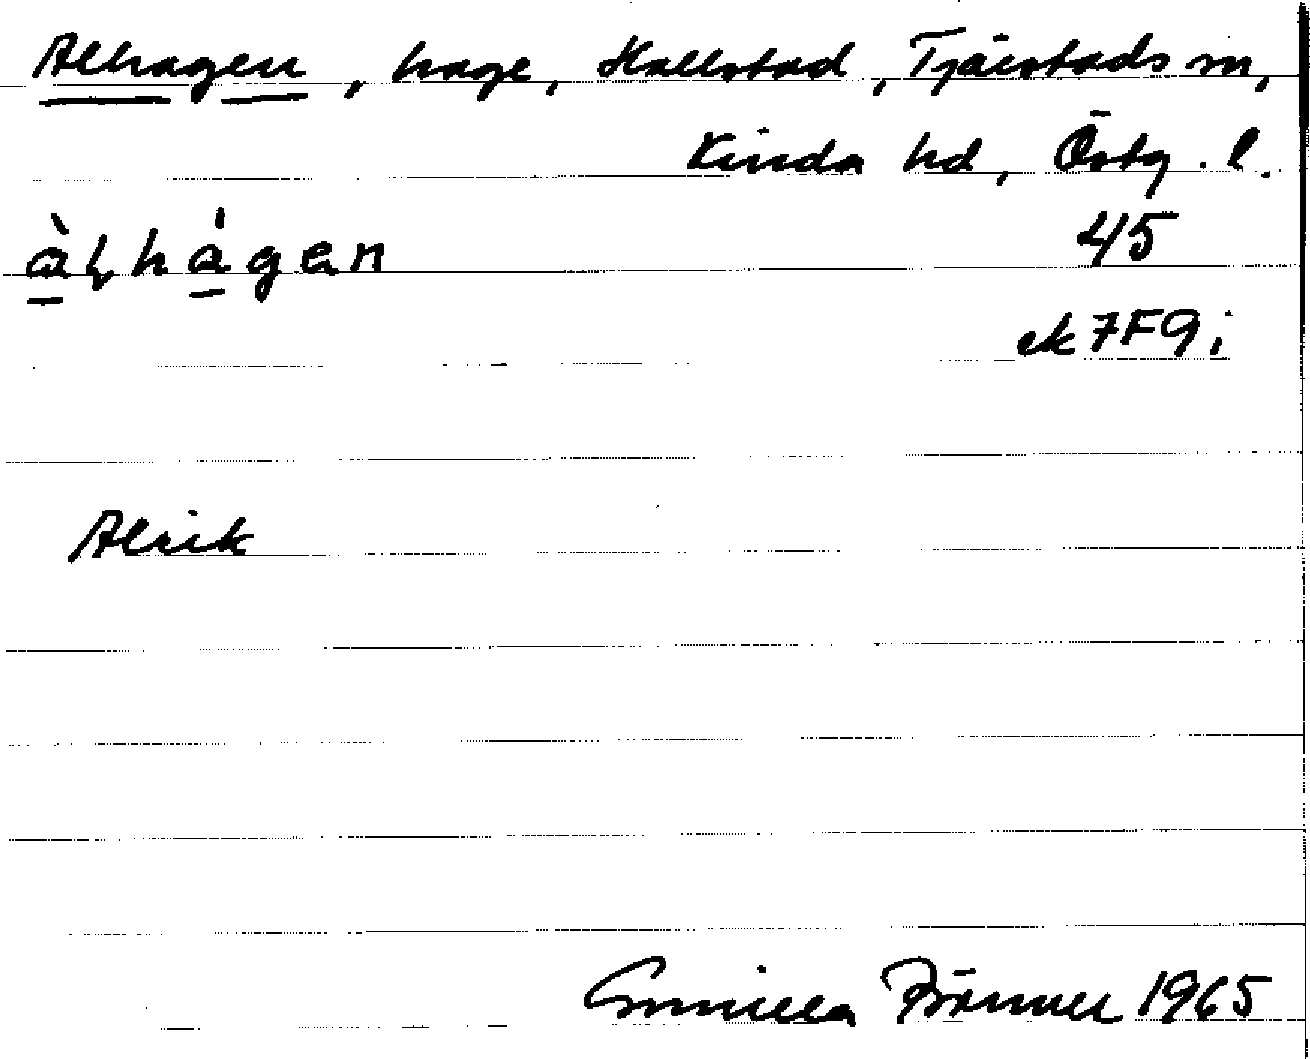 Alhagen, hage, Hallstad, Tjärstads sn,
Kinda hd, Östg. l.
àḷhágen 45
ek 7F9i
Alrik
Gunilla Brömner 1965